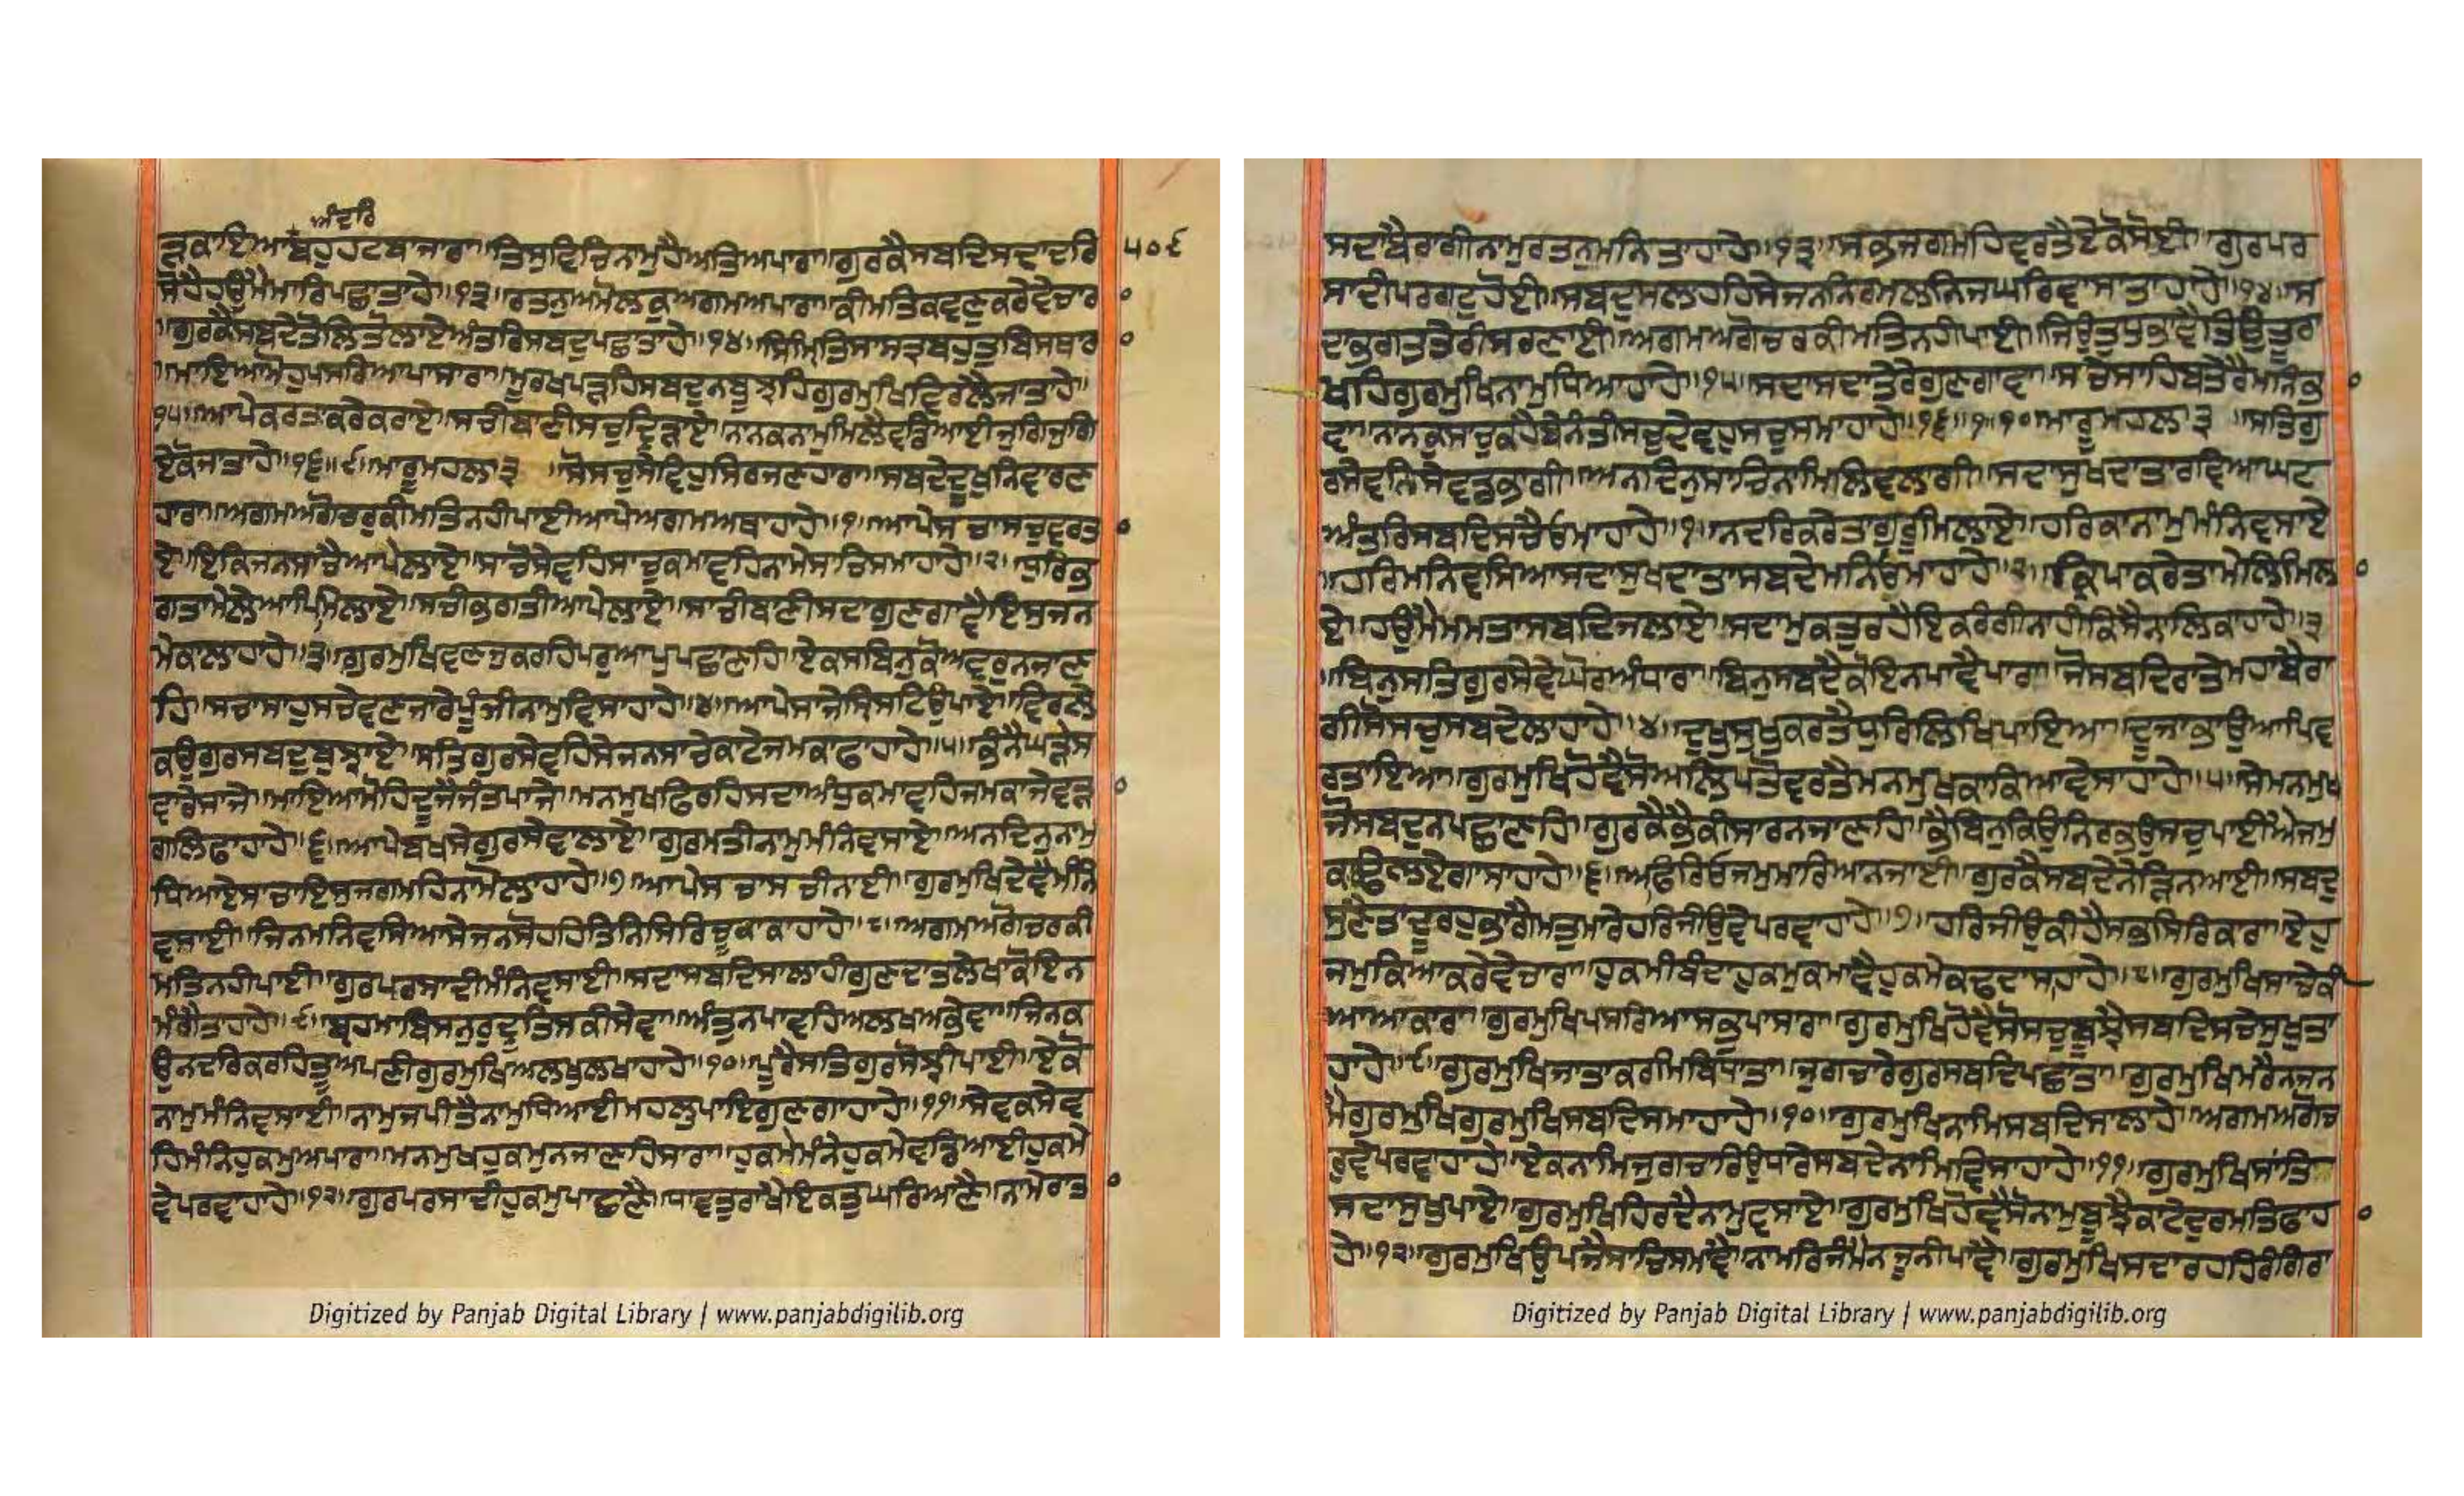 ਅੰਦਰਿ
ੜਕਾਇਆਬਹੁਹਟਬਾਜਾਰਾ॥ਤਿਸੁਵਿਚਿਨਾਮੁਹੈਅਤਿਅਪਾਰਾ॥ਗੁਰਕੈਸਬਦਿਸਦਾਦਰਿ ੫੦੬
ਸੋਹੈਹਉਮੈਮਾਰਿਪਛਾਤਾਹੇ॥੧੩॥ਰਤਨੁਅਮੋਲਕੁਅਗਮਅਪਾਰਾ॥ਕੀਮਤਿਕਵਣੁਕਰੇਵੇਚਾਰ
॥ਗੁਰਕੈਸਬਦੇਤੋਲਿਤੋਲਾਏਅੰਤਰਿਸਬਦੁਪਛਾਤਾਹੇ॥੧੪॥ਸਿਮ੍ਰਿਤਿਸਾਸਤ੍ਰਬਹੁਤੁਬਿਸਥਾਰ
॥ਮਾਇਆਮੋਹੁਪਸਰਿਆਪਾਸਾਰਾ॥ਮੂਰਖਪੜਹਿਸਬਦੁਨਬੂਝਹਿਗੁਰਮੁਖਿਵਿਰਲੈਜਾਤਾਹੇ॥
੧੫॥ਆਪੇਕਰਤਾਕਰੇਕਰਾਏ॥ਸਚੀਬਾਣੀਸਚੁਦ੍ਰਿੜਾਏ॥ਨਾਨਕਨਾਮੁਮਿਲੈਵਡਿਆਈਜੁਗਿਜੁਗਿ
ਏਕੋਜਾਤਾਹੇ॥੧੬॥੯॥ਮਾਰੂਮਹਲਾ੩ ॥ਸੋਸਚੁਸੇਵਿਹੁਸਿਰਜਣਹਾਰਾ॥ਸਬਦੇਦੂਖੁਨਿਵਾਰਣ
ਹਾਰਾ॥ਅਗਮਅਗੋਚਰੁਕੀਮਤਿਨਹੀਪਾਈਆਪੇਅਗਮਅਥਾਹਾਹੇ॥੧॥ਆਪੇਸਚਾਸਚੁਵਰਤ
ਏ॥ਇਕਿਜਨਸਾਚੈਆਪੇਲਾਏ॥ਸਾਚੋਸੇਵਹਿਸਾਚੁਕਮਾਵਹਿਨਾਮੇਸਚਿਸਮਾਹਾਹੇ॥੨॥ਧੁਰਿਭ
ਗਤਾਮੇਲੇਆਪਿਮਿਲਾਏ॥ਸਚੀਭਗਤੀਆਪੇਲਾਏ॥ਸਾਚੀਬਾਣੀਸਦਾਗੁਣਗਾਵੈਇਸੁਜਨ
ਮੈਕਾਲਾਹਾਹੇ॥੩॥ਗੁਰਮੁਖਿਵਣਜੁਕਰਹਿਪਰੁਆਪੁਪਛਾਣਹਿ॥ਏਕਸਬਿਨੁਕੋਅਵਰੁਨਜਾਣ
ਹਿ॥ਸਚਾਸਾਹੁਸਚੇਵਣਜਾਰੇਪੂੰਜੀਨਾਮੁਵਿਸਾਹਾਹੇ॥੪॥ਆਪੇਸਾਜੇਸ੍ਰਿਸਟਿਉਪਾਏ॥ਵਿਰਲੇ
ਕਉਗੁਰਸਬਦੁਬੁਝਾਏ॥ਸਤਿਗੁਰਸੇਵਹਿਸੇਜਨਸਾਚੇਕਾਟੇਜਮਕਾਫਾਹਾਹੇ॥੫॥ਭੰਨੈਘੜੇਸ
ਵਾਰੇਸਾਜੇ॥ਮਾਇਆਮੋਹਿਦੂਜੈਜੰਤਪਾਜੇ॥ਮਨਮੁਖਫਿਰਹਿਸਦਾਅੰਧੁਕਮਾਵਹਿਜਮਕਾਜੇਵੜਾ
ਗਲਿਫਾਹਾਹੇ॥੬॥ਆਪੇਬਖਸੇਗੁਰਸੇਵਾਲਾਏ॥ਗੁਰਮਤੀਨਾਮੁਮੰਨਿਵਸਾਏ॥ਅਨਦਿਨੁਨਾਮੁ
ਧਿਆਏਸਾਚਾਇਸੁਜਗਮਹਿਨਾਮੋਲਾਹਾਹੇ॥੭॥ਆਪੇਸਚਾਸਚੀਨਾਈ॥ਗੁਰਮੁਖਿਦੇਵੈਮੰਨਿ
ਵਸਾਈ॥ਜਿਨਮਨਿਵਸਿਆਸੇਜਨਸੋਹਹਿਤਿਨਿਸਿਰਿਚੂਕਾਕਾਹਾਹੇ॥੮॥ਅਗਮਅਗੋਚਰਕੀ
ਮਤਿਨਹੀਪਾਈ॥ਗੁਰਪਰਸਾਦੀਮੰਨਿਵਸਾਈ॥ਸਦਾਸਬਦਿਸਾਲਾਹੀਗੁਣਦਾਤਾਲੇਖਾਕੋਇਨ
ਮੰਗੈਤਾਹਾਹੇ॥੯॥ਬ੍ਰਹਮਾਬਿਸਨੁਰੁਦ੍ਰੁਤਿਸਕੀਸੇਵਾ॥ਅੰਤੁਨਪਾਵਹਿਅਲਖਅਭੇਵਾ॥ਜਿਨਕ
ਉਨਦਰਿਕਰਹਿਤੂਅਪਣੀਗੁਰਮੁਖਿਅਲਖੁਲਖਾਹਾਹੇ॥੧੦॥ਪੂਰੈਸਤਿਗੁਰਸੋਝੀਪਾਈ॥ਏਕੋ
ਨਾਮੁਮੰਨਿਵਸਾਈ॥ਨਾਮੁਜਪੀਤੈਨਾਮੁਧਿਆਈਮਹਲੁਪਾਇਗੁਣਗਾਹਾਹੇ॥੧੧॥ਸੇਵਕਸੇਵ
ਹਿਮੰਨਿਹੁਕਮੁਅਪਾਰਾ॥ਮਨਮੁਖਹੁਕਮੁਨਜਾਣਹਿਸਾਰਾ॥ਹੁਕਮੇਮੰਨੇਹੁਕਮੇਵਡਿਆਈਹੁਕਮੇ
ਵੇਪਰਵਾਹਾਹੇ॥੧੨॥ਗੁਰਪਰਸਾਦੀਹੁਕਮੁਪਾਛਣੈ॥ਧਾਵਤੁਰਾਖੈਇਕਤੁਘਰਿਆਣੈ॥ਨਾਮੇਰਾਤ
Digitized by Panjab Digital Library | www.panjabdigilib.org
ਸਦਾਬੈਰਾਗੀਨਾਮੁਰਤਨੁਮਨਿਤਾਹਾਹੇ॥੧੩॥ਸਭਜਗਮਹਿਵਰਤੈਏਕੋਸੋਈ॥ਗੁਰਪਰ
ਸਾਦੀਪਰਗਟੁਹੋਈ॥ਸਬਦੁਸਲਾਹਹਿਸੇਜਨਨਿਰਮਲਨਿਜਘਰਿਵਾਸਾਤਾਹਾਹੇ॥੧੪॥ਸ
ਦਾਭਗਤਤੇਰੀਸਰਣਾਈ॥ਅਗਮਅਗੋਚਰਕੀਮਤਿਨਹੀਪਾਈ॥ਜਿਉਤੁਧੁਭਾਵੈਤਿਉਤੂਰਾ
ਖਹਿਗੁਰਮੁਖਿਨਾਮੁਧਿਆਹਾਹੇ॥੧੫॥ਸਦਾਸਦਾਤੇਰੇਗੁਣਗਾਵਾ॥ਸਚੇਸਾਹਿਬਤੇਰੈਮਨਿਭ
ਵਾ॥ਨਾਨਕੁਸਾਚੁਕਹੈਬੇਨੰਤੀਸਚੁਦੇਵਹੁਸਚੁਸਮਾਹਾਹੇ॥੧੬॥੧॥੧੦॥ਮਾਰੂਮਹਲਾ੩ ॥ਸਤਿਗੁ
ਰਸੇਵਨਿਸੇਵਡਭਾਗੀ॥ਅਨਦਿਨੁਸਾਚਿਨਾਮਿਲਿਵਲਾਗੀ॥ਸਦਾਸੁਖਦਾਤਾਰਵਿਆਘਟ
ਅੰਤਰਿਸਬਦਿਸਚੈਓਮਾਹਾਹੇ॥੧॥ਨਦਰਿਕਰੇਤਾਗੁਰੂਮਿਲਾਏ॥ਹਰਿਕਾਨਾਮੁਮੰਨਿਵਸਾਏ
॥ਹਰਿਮਨਿਵਸਿਆਸਦਾਸੁਖਦਾਤਾਸਬਦੇਮਨਿਓਮਾਹਾਹੇ॥੨॥ਕ੍ਰਿਪਾਕਰੇਤਾਮੇਲਿਮਿਲ
ਏ॥ਹਉਮੈਮਮਤਾਸਬਦਿਜਲਾਏ॥ਸਦਾਮੁਕਤੁਰਹੈਇਕਰੰਗੀਨਾਹੀਕਿਸੈਨਾਲਿਕਾਹਾਹੇ॥੩
॥ਬਿਨੁਸਤਿਗੁਰਸੇਵੇਘੋਰਅੰਧਾਰਾ॥ਬਿਨੁਸਬਦੈਕੋਇਨਪਾਵੈਪਾਰਾ॥ਜੋਸਬਦਿਰਾਤੇਮਹਾਬੈਰਾ
ਗੀਸੋਸਚੁਸਬਦੇਲਾਹਾਹੇ॥੪॥ਦੁਖੁਸੁਖੁਕਰਤੈਧੁਰਿਲਿਖਿਪਾਇਆ॥ਦੂਜਾਭਾਉਆਪਿਵ
ਰਤਾਇਆ॥ਗੁਰਮੁਖਿਹੋਵੈਸੋਅਲਿਪਤੋਵਰਤੈਮਨਮੁਖਕਾਕਿਆਵੇਸਾਹਾਹੇ॥੫॥ਸੇਮਨਮੁਖ
ਜੋਸਬਦੁਨਪਛਾਣਹਿ॥ਗੁਰਕੈਭੈਕੀਸਾਰਨਜਾਣਹਿ॥ਭੈਬਿਨੁਕਿਉਨਿਰਭਉਸਚੁਪਾਈਐਜਮੁ
ਕਾਢਿਲਏਗਾਸਾਹਾਹੇ॥੬॥ਅਫਰਿਓਜਮੁਮਾਰਿਆਨਜਾਈ॥ਗੁਰਕੈਸਬਦੇਨੇੜਿਨਆਈ॥ਸਬਦੁ
ਸੁਣੇਤਾਦੂਰਹੁਭਾਗੈਮਤੁਮਾਰੇਹਰਿਜੀਉਵੇਪਰਵਾਹਾਹੇ॥੭॥ਹਰਿਜੀਉਕੀਹੈਸਭਸਿਰਿਕਾਰਾ॥ਏਹੁ
ਜਮੁਕਿਆਕਰੇਵੇਚਾਰਾ॥ਹੁਕਮੀਬੰਦਾਹੁਕਮੁਕਮਾਵੈਹੁਕਮੇਕਢਦਾਸਾਹਾਹੇ॥੮॥ਗੁਰਮੁਖਿਸਾਚੈਕੀ
ਆਆਕਾਰਾ॥ਗੁਰਮੁਖਿਪਸਰਿਆਸਭੁਪਾਸਾਰਾ॥ਗੁਰਮੁਖਿਹੋਵੈਸੋਸਚੁਬੂਝੈਸਬਦਿਸਚੇਸੁਖੁਤਾ
ਹਾਹੇ॥੯॥ਗੁਰਮੁਖਿਜਾਤਾਕਰਮਿਬਿਧਾਤਾ॥ਜੁਗਚਾਰੇਗੁਰਸਬਦਿਪਛਾਤਾ॥ਗੁਰਮੁਖਿਮਰੈਨਜਨ
ਮੈਗੁਰਮੁਖਿਗੁਰਮੁਖਿਸਬਦਿਸਮਾਹਾਹੇ॥੧੦॥ਗੁਰਮੁਖਿਨਾਮਿਸਬਦਿਸਾਲਾਹੇ॥ਅਗਮਅਗੋਚ
ਰੁਵੇਪਰਵਾਹਾਹੇ॥ਏਕਨਾਮਿਜੁਗਚਾਰਿਉਧਾਰੇਸਬਦੇਨਾਮਿਵਿਸਾਹਾਹੇ॥੧੧॥ਗੁਰਮੁਖਿਸਾਂਤਿ
ਸਦਾਸੁਖੁਪਾਏ॥ਗੁਰਮੁਖਿਹਿਰਦੈਨਾਮੁਵਸਾਏ॥ਗੁਰਮੁਖਿਹੋਵੈਸੋਨਾਮੁਬੂਝੈਕਾਟੇਦੁਰਮਤਿਫਾਹ
ਹੇ॥੧੨॥ਗੁਰਮੁਖਿਉਪਜੈਸਾਚਿਸਮਾਵੈ॥ਨਾਮਰਿਜੰਮੈਨਜੂਨੀਪਾਵੈ॥ਗੁਰਮੁਖਿਸਦਾਰਹਹਿਰੰਗਿਰਾ
Digitized by Panjab Digital Library | www.panjabdigilib.org